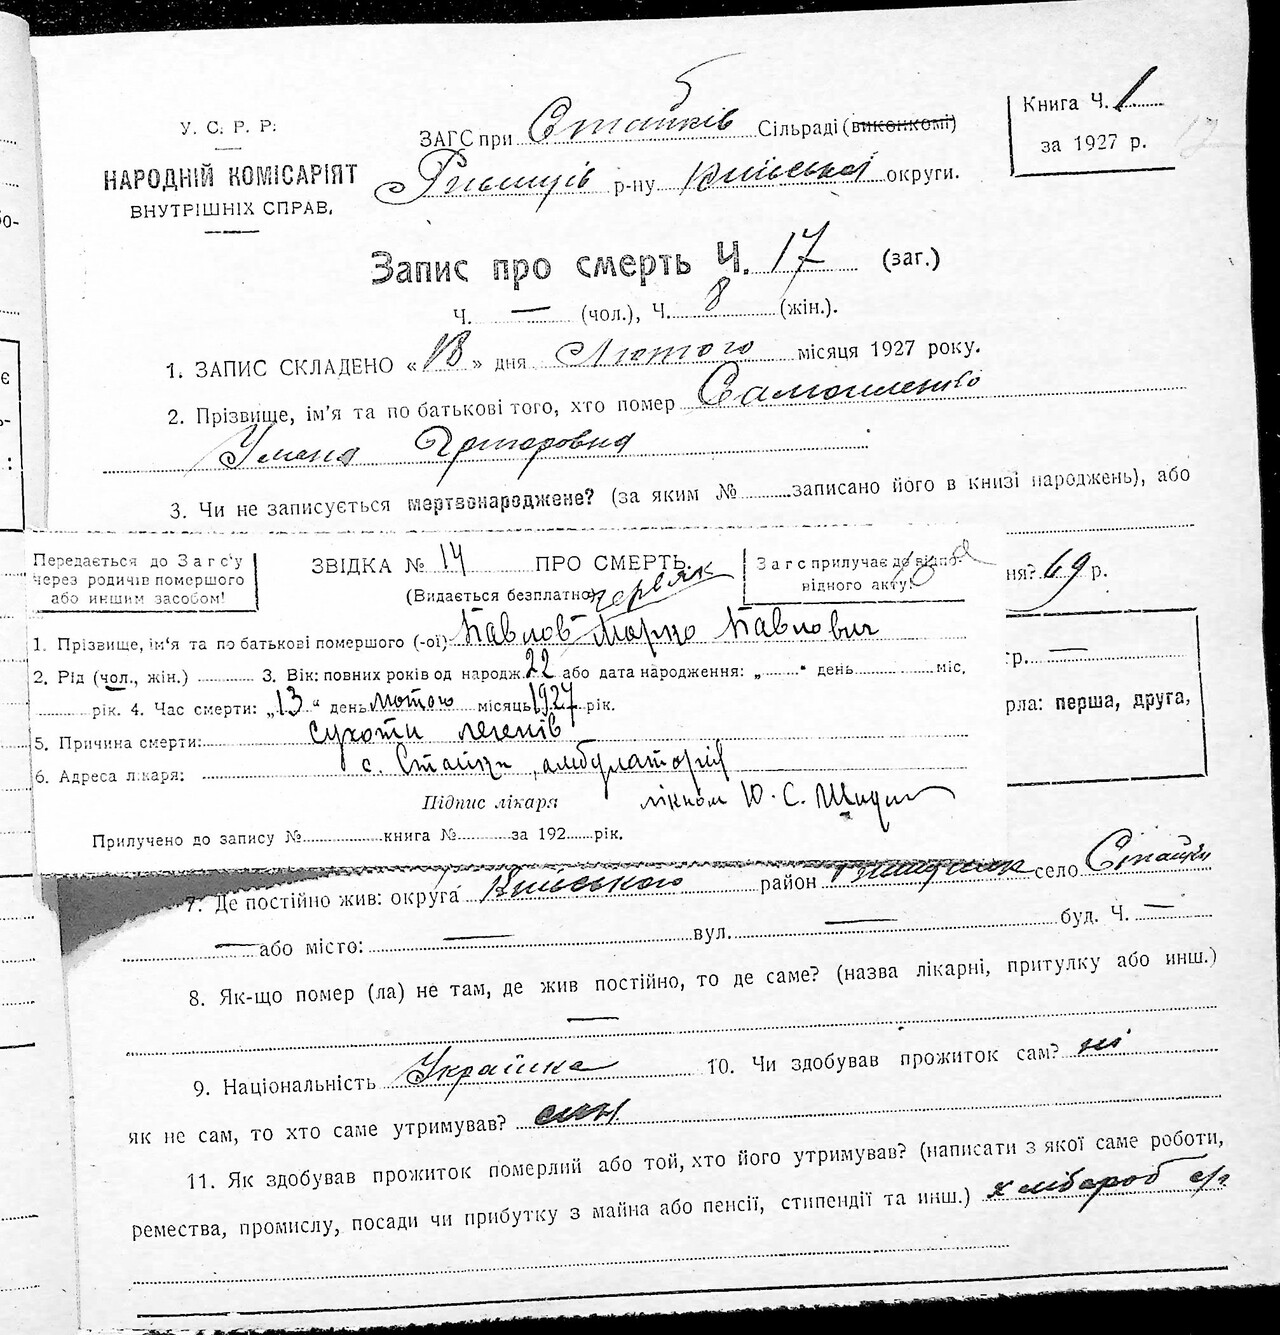 У. С. Р. Р.
НАРОДНІЙ КОМІСАРІЯТ
ВНУТРІШНІХ СПРАВ.
ЗАГС при Стайків Сільраді (виконкомі)
р-ну Київської округи.
Книга Ч. 1
за 1927 р.
Запис про смерть Ч. 17 (заг.)
Ч. — (чол.), Ч. 8 (жін.).
1. ЗАПИС СКЛАДЕНО «18» дня Лютого місяця 1927 року.
2. Прізвище, ім'я та по батькові того, хто помер Самойленко
Уляна Григоровна
3. Чи не записується мертвонароджене? (за яким № записано його в книзі народжень), або
ня? 69 р.
гр. —
рла: перша, друга,
Передається до Загс'у
через родичів помершого
або иншим засобом!
ЗВІДКА № 14 ПРО СМЕРТЬ.
(Видається безплатно)
Загс прилучає до відпо-
відного акту.
червяк
1. Прізвище, ім'я та по батькові помершого (-ої) Павлов Марко Павлович
2. Рід (чол., жін.) 3. Вік: повних років од народж. 22 або дата народження: „ " день міс.
рік. 4. Час смерти: „13" день лютого місяць 1927 рік.
5. Причина смерти: сухоти легенів
6. Адреса лікаря: с. Стайки, амбулаторія
Підпис лікаря лікпом Ю. С.
Прилучено до запису № книга № за 192 рік.
7. Де постійно жив: округа Київського район село Стайки
— або місто: — вул. — буд. Ч. —
8. Як-що помер (ла) не там, де жив постійно, то де саме? (назва лікарні, притулку або инш.)
—
9. Національність Українка 10. Чи здобував прожиток сам? ні
як не сам, то хто саме утримував? син
11. Як здобував прожиток померлий або той, хто його утримував? (написати з якої саме роботи,
ремества, промислу, посади чи прибутку з майна або пенсії, стипендії та инш.) хлібороб с/г